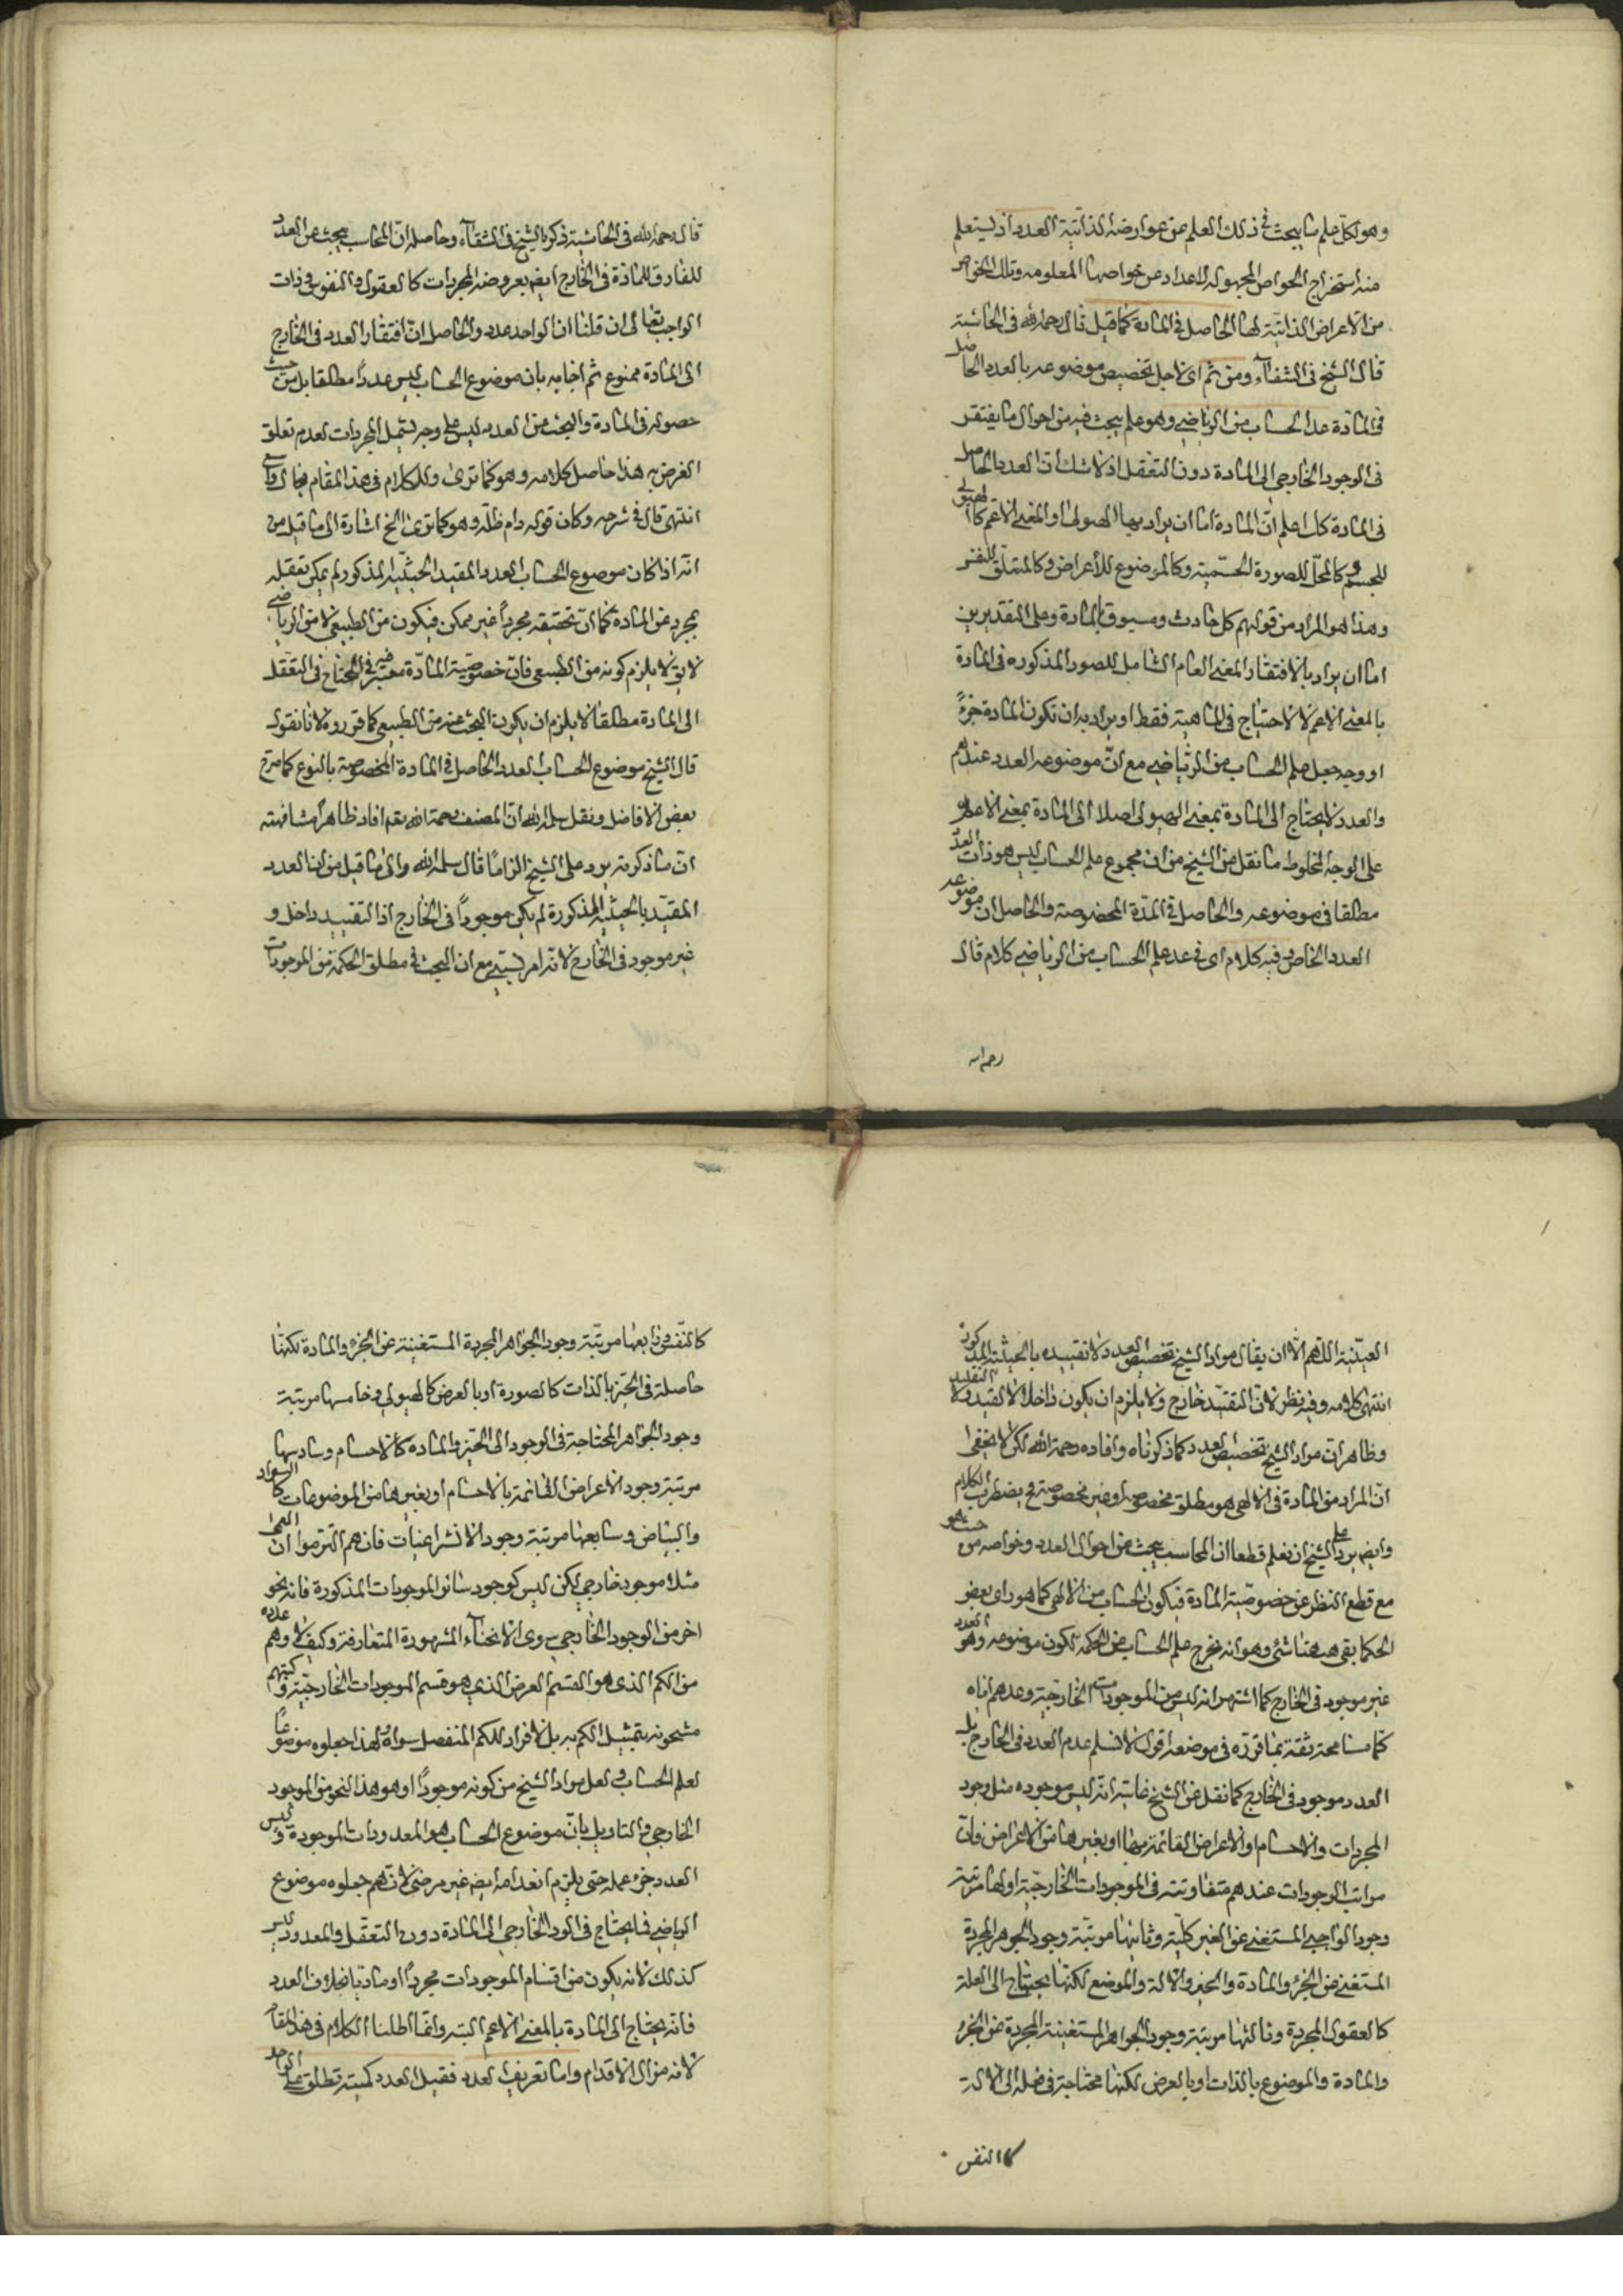 وهو لكل علم ما يبحث في ذلك العلم عن عوارضه الذاتية العدد اذ ليستعلم
منه استخراج الخواص المجهولة الاعداد عن خواصها المعلومه وتلك الخواص
من الاعراض الذاتية لها الحاصل في المادة كما قيل قال رحمه الله في الحاشية
قال الشيخ في الشفاء ومن ثم اى لاجل تخصيص موضوعه بالعدد الحاصل
في المادة عد الحساب من الرياضي وهو علم يبحث فيه من احوال ما يفتقر
في الوجود الخارجي الى المادة دون التعقل اذ لا شك ان العدد الحاصل
في المادة كك اعلم ان المادة اما ان يراد بها الهيولى او المعنى الاعم كالهيولى
للجسم وكالمحل للصورة الجسمية وكالموضوع للأعراض وكالمتعلق للنفس
وهذا هو المراد من قولهم كل حادث ومسبوق بالمادة وعلى التقديرين
اما ان يراد بالافتقار المعنى العام الشامل للصور المذكوره في المادة
بالمعنى الاعم لا الاحتياج في الماهية فقط او يراد به ان تكون المادة جزءً
او وجه جعل علم الحساب من الرياضي مع ان موضوعه العدد عندهم
والعدد لا يحتاج الى المادة بمعنى الهيولى اصلا الى المادة بمعنى الاعم
على الوجه المخلوط ما نقل من الشيخ من ان مجموع علم الحساب ليس هو ذات العدد
مطلقا في موضوعه والحاصل في المدة المخصوصة والحاصل ان موضوعه
العدد الخاص وفيه كلام اى في عد علم الحساب من الرياضي كلام قال
رحمه الله
قال رحمه الله في الحاشية ذكره الشيخ في الشفاء وحاصله ان المحاسب يبحث عن العدد
المفارق للمادة في الخارج ايضا بعروضه المجردات كالعقول والنفوس وذات
الواجب تعالى ان قلنا ان الواحد عدد والحاصل ان افتقار العدد في الخارج
الى المادة ممنوع ثم اجابه بان موضوع الحساب ليس عدداً مطلقا بل من حيث
حصوله في المادة والبحث من العدد ليس على وجه يشمل المجردات لعدم تعلق
الغرض به هذا حاصل كلامه وهو كما ترى وللكلام في هذا المقام مجال واسع
انتهى قال في شرحه وكان قوله دام ظله وهو كما ترى الخ اشارة الى ما قيل من
انه اذا كان موضوع الحساب العدد المقيد الحيثية المذكور لم يمكن تعقله
مجرد عن المادة كما ان تحققه مجرداً غير ممكن فيكون من الطبيعي لا من الرياضي
لا يق لا يلزم كونه من الطبيعي فان خصوصية المادة معتبر فيه في المحتاج في التعقل
الى المادة مطلقا لا يلزم ان يكون البحث عنه من الطبيعي كما قرروه لانا نقول
قال الشيخ موضوع الحساب العدد الحاصل في المادة المخصوصة بالنوع كما صرح
بعض الافاضل ونقل سلمه الله ان المصنف رحمة الله بقم افاد ظاهراً مشافهته
ان ما ذكرته يرد على الشيخ الزاما قال سلمه الله والى ما قيل من ان العدد
المقيد بالحيثية المذكورة لم يكن موجوداً في الخارج اذا التقييد داخل و
غير موجود في الخارج لانه امر نسبي مع ان البحث في مطلق الحكمة من الموجودات
العينية اللهم الا ان يقال مراد الشيخ تخصيص العدد لا تقييده بالحيثية المذكورة
انتهى كلامه وفيه نظر لان التقييد خارج ولا يلزم ان يكون داخلا الا لقيد ولا التقييد
وظاهر ان مراد الشيخ تخصيص العدد كما ذكرناه وافاده رحمة الله لكن لا يخفى
ان المراد من المادة في الالهي هو مطلق مخصوصة او غير مخصوصة فح يضطرب الكلام
وايض يرد على الشيخ ان نعلم قطعا ان المحاسب يبحث عن احوال العدد وخواصه من حيث هو
مع قطع النظر عن خصوصية المادة فيكون الحساب من الالهي كما هو راى بعض
الحكما بقى ههنا شئ وهو انه يخرج علم الحساب من الحكمة لكون موضوعه وهو العدد
غير موجود في الخارج كما اشتهر انه ليس من الموجودات الخارجية وعدهم اياه
كما مسامحة ثقة بما قرره في موضعه اقول لا نسلم عدم العدد في الخارج بل
العدد موجود في الخارج كما نقل عن الشيخ غايته انه ليس موجوده مثل وجود
المجردات والاجسام او الاعراض القائمة بها او بغيرها من الاعراض فان
مراتب الوجودات عندهم متفاوتة في الموجودات الخارجية اولها مرتبة
وجود الواجبي المستغنى عن الغير كلية وثانيها مرتبة وجود الجوهر المجردة
المستغنى عن الجزء والمادة والحيز والالة والموضع لكنها يحتاج الى العلة
كالعقول المجردة وثالثها مرتبة وجود الجواهر المستغنية المجردة عن الجزء
والمادة والموضوع بالذات او بالعرض لكنها محتاجة في فعله الى الالة
كالنفس
كالنفس ورابعها مرتبة وجود الجواهر المجردة المستغنية عن الجزء والمادة لكنها
حاصلة في الحيز بالذات كالصورة او بالعرض كالهيولى وخامسها مرتبة
وجود الجواهر المحتاجة في الوجود الى الحيز والمادة كالاجسام وسادسها
مرتبة وجود الاعراض القائمة بالاجسام او بغيرها من الموضوعات كالسواد
والبياض وسابعها مرتبة وجود الانتزاعيات فانهم التزموا ان العمى
مثلا موجود خارجي لكن ليس كوجود سائر الموجودات المذكورة فانه نحو
اخر من الوجود الخارجي سوى الانحاء المشهورة المتعارفة وكيف لا وهم عدوه
من الكم الذي هو القسم العرض الذي هو قسم الموجودات الخارجية وكتبهم
مشحونه بتمثيل الكم به بل لا افراد للكم المنفصل سواه لهذا جعلوه موضوعا
لعلم الحساب ولعل مراد الشيخ من كونه موجوداً او هو هذا النحو من الموجود
الخارجي والتاويل بان موضوع الحساب هو المعدودات الموجودة وليس
العدد جزء عمله حتى يلزم انعدامه ايضا غير مرضى لانهم جعلوه موضوع
الرياضي فما يحتاج في الود الخارجي الى المادة دون التعقل والمعدود ليس
كذلك لانه يكون من اقسام الموجودات مجرداً او ماديا بخلاف العدد
فانه يحتاج الى المادة بالمعنى الاعم البتة وانما اطلنا الكلام في هذا المقام
لانه مزال الاقدام واما تعريف العدد فقيل العدد كمية تطلق على الواحد